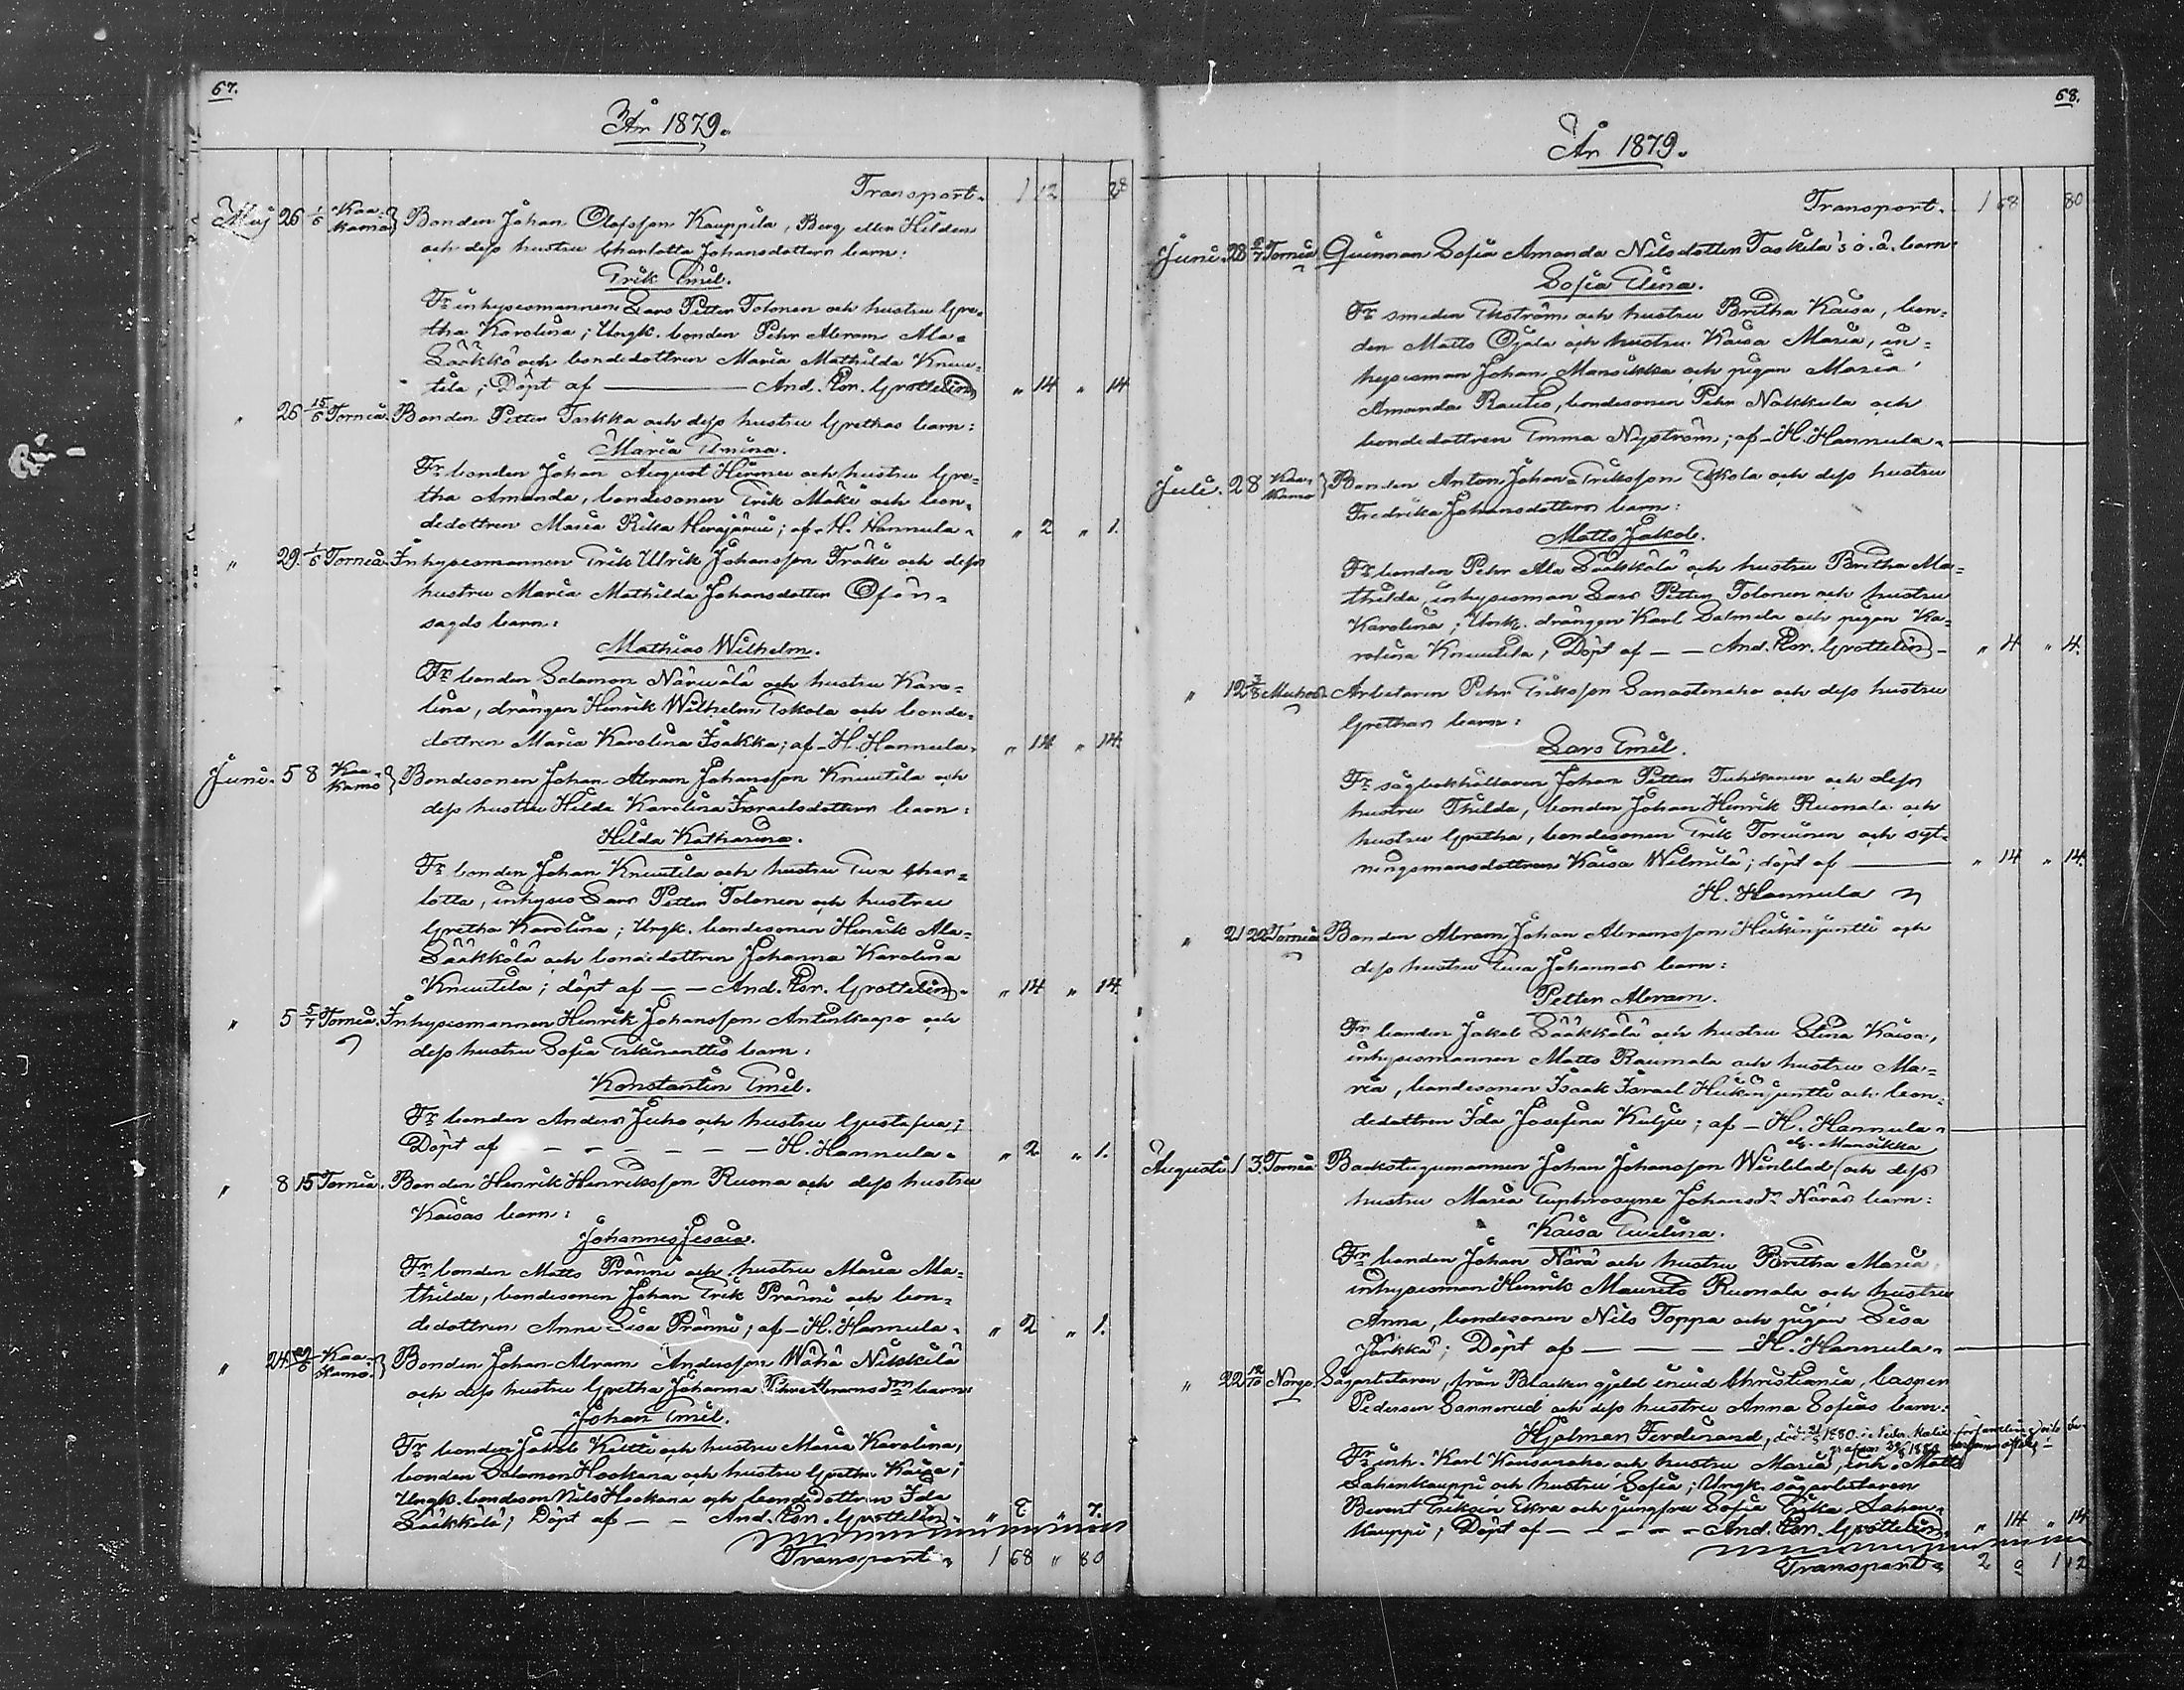 67.
År 1879.
Transport. 1 12 28
Maj 26 1/6 Kaakamo } Bonden Johan Olofsson Kauppila, Berg eller Hilden
och dess hustru Charlotta Johansdotters barn:
Erik Emil.
Fr inhysesmannen Lars Petter Tolonen och hustru Gre=
tha Karolina; Ungk. bonden Pehr Abram Ala=
Sääkkö och bondedottren Maria Mathilda Knuu=
tila; Döpt af — And. Cor. Grottelin " 14 " 14
" 26 15/6 Torneå. Bonden Petter Tarkka och dess hustru Grethas barn:
Maria Ernina.
Fr bonden Johan August Hirmu och hustru Gre=
tha Amanda, bondesonen Erik Mäki och bon=
dedottren Maria Rika Herajärvi; af H. Hannula. " 2 " 1.
" 29. 1/6 Torneå. Inhysesmannen Erik Ulrik Johansson Träki och dess
hustru Maria Mathilda Johansdotter Ofön=
sagds barn:
Mathias Wilhelm.
Fr bonden Salomon Närwälä och hustru Karo=
lina, drängen Henrik Wilhelm Eskola och bonde=
dottren Maria Karolina Isakka; af H. Hannula. " 14 " 14.
Juni. 5 8 Kaakamo } Bondesonen Johan Abram Johansson Knuutila och
dess hustru Hilda Karolina Israelsdotters barn:
Hilda Katharina.
Fr bonden Johan Knuutila och hustru Eva Char=
lotta, inhyses Lars Petter Tolonen och hustru
Gretha Karolina; Ungk. bondesonen Henrik Ala=
Sääkkölä och bondedottren Johanna Karolina
Knuutila; döpt af — — And. Cor. Grottelin. " 14 " 14.
" 5 5/7 Torneå. Inhysesmannen Henrik Johansson Antinkaapo och
dess hustru Sofia Erkinanttis barn:
Konstantin Emil.
Fr bonden Anders Juho och hustru Gustafva;
Döpt af — — — — — — H. Hannula. " 2 " 1.
" 8 15 Torneå. Bonden Henrik Henriksson Ruona och dess hustru
Kaisas barn:
Johannes Jesaia.
Fr bonden Matts Pränni och hustru Maria Ma=
thilda, bondesonen Johan Erik Pränni och bon=
dedottren Anna Lisa Pränni; af H. Hannula. " 2 " 1.
" 24. 29/6 Kaakamo. } Bonden Johan Abram Andersson Wähä Nikkilä
och dess hustru Gretha Johanna Pehr Abramsdrs barn:
Johan Emil.
Fr bonden Jakob Kiltti och hustru Maria Karolina,
bonden Salomon Hookana och hustru Gretha Kaisa;
Ungk. bondeson Nils Hookana och bondedottren Ida
Sääkkölä; Döpt af — — And. Cor. Grottelin. " 8. " 7.
Transport. 1 68 " 80
68.
År 1879.
Transport. 1 68 80
Juni. 28 6/7 Torneå Quinnan Sofia Amanda Nilsdotter Taskila's o. ä. barn:
Sofia Elina.
Fr smeden Ekström och hustru Britha Kaisa, bon=
den Matts Ojala och hustru Kaisa Maria, in=
hysesman Johan Mansikka och pigan Maria
Amanda Rautio, bondesonen Pehr Näkkula och
bondedottren Emma Nyström; af H. Hannula.
Juli. 2 8 Kaakamo } Bonden Anton Johan Eriksson Eskola och dess hustru
Fredrika Johansdotters barn:
Matts Jakob.
Fr bonden Pehr Ala Sääkkölä och hustru Britha Ma=
thilda, inhysesman Lars Petter Tolonen och hustru
Karolina; Unk. drängen Karl Salmela och pigan Ka=
rolina Knuutila; Döpt af — — And. Cor. Grottelin " 4 " 4.
" 12 3/8 Muhos. Arbetaren Pehr Eriksson Sanastenaho och dess hustru
Grethas barn:
Lars Emil.
Fr sågbokhållaren Johan Petter Tuhkanen och dess
hustru Thilda, bonden Johan Henrik Ruonala och
hustru Gretha, bondesonen Erik Torvinen och syt=
ningsmansdottren Kaisa Wilmilä; döpt af — " 14 " 14.
H. Hannula
" 21 22 Torneå Bonden Abram Johan Abramsson Heikinjuntti och
dess hustru Eva Johannas barn:
Petter Abram.
Fr bonden Jakob Sääkkölä och hustru Stina Kaisa,
inhysesmannen Matts Raumala och hustru Ma=
ria, bondesonen Isaak Israel Heikinjuntti och bon=
dedottren Ida Josefina Kulju; af H. Hannula.
Augusti. 1 3. Torneå Backstugumannen Johan Johansson Winblad elr. Mansikka och dess
hustru Maria Euphrosyne Johansdr Näräs barn:
Kaisa Evelina.
Fr bonden Johan Närä och hustru Britha Maria,
inhysesman Henrik Maurits Ruonala och hustru
Anna, bondesonen Nils Toppa och pigan Lisa
Järkkä; Döpt af — — — H. Hannula.
" 22 12/10 Norge. Sågarbetaren, från Blacker gjeld invid Christiania, Casper
Pedersen Sannerud och dess hustru Anna Sofias barn:
Hjalmar Ferdinand, död 1880. i Neder Kalix församling
Fr inh. Karl Kansanaho och hustru Maria, inh. Matts
Lahenkauppi och hustru Sofia; Ungk. sågarbetaren
Bernt Eriksen Ekra och jungfru Sofia Erika Lahen=
kauppi; Döpt af — — — — And. Cor. Grottelin. " 14 " 14
Transport. 2 2 1 12